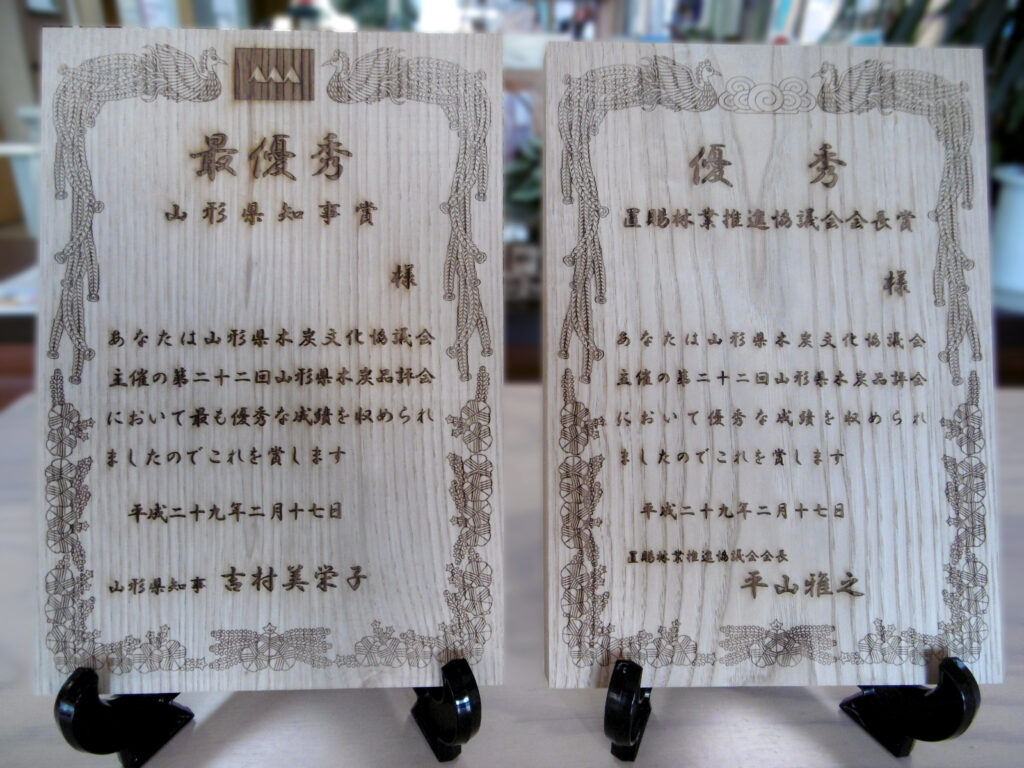 最優秀
山形県知事賞
様
あなたは山形県木炭文化協議会
主催の第二十二回山形県木炭品評会
において最も優秀な成績を収められ
ましたのでこれを賞します
平成二十九年二月十七日
山形県知事 吉村美栄子
優 秀
置賜林業推進協議会会長賞
様
あなたは山形県木炭文化協議会
主催の第二十二回山形県木炭品評会
において優秀な成績を収められ
ましたのでこれを賞します
平成二十九年二月十七日
置賜林業推進協議会会長
平山雅之